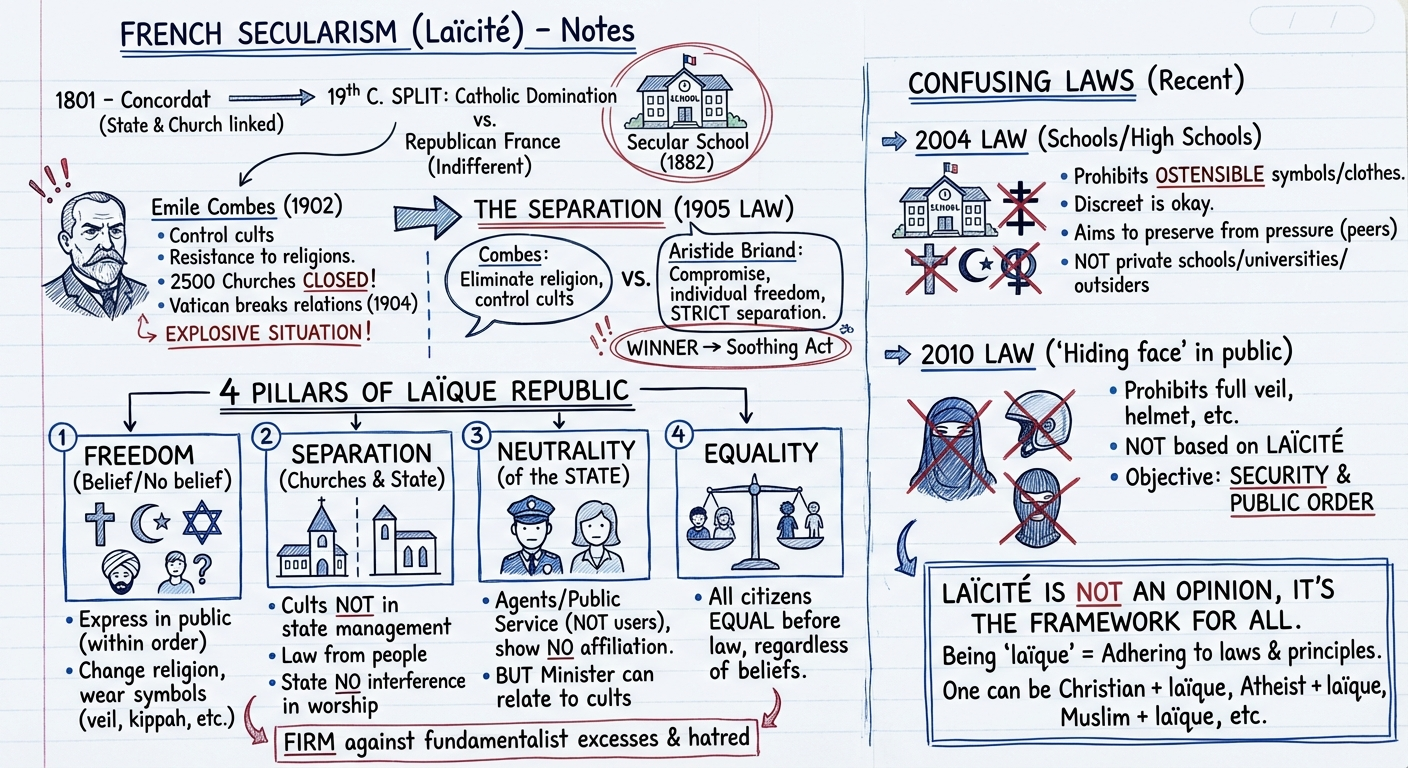 FRENCH SECULARISM (Laïcité) – Notes
1801 – Concordat
(State & Church linked)
19th C. SPLIT: Catholic Domination
vs.
Republican France
(Indifferent)
SCHOOL
Secular School
(1882)
!!!
Emile Combes (1902)
• Control cults
• Resistance to religions.
• 2500 Churches CLOSED!
• Vatican breaks relations (1904)
EXPLOSIVE SITUATION!
THE SEPARATION (1905 LAW)
Combes:
Eliminate religion,
control cults
VS.
Aristide Briand:
Compromise,
individual freedom,
STRICT separation.
!!!
WINNER → Soothing Act
4 PILLARS OF LAÏQUE REPUBLIC
1
FREEDOM
(Belief/No belief)
?
• Express in public
(within order)
• Change religion,
wear symbols
(veil, kippah, etc.)
2
SEPARATION
(Churches & State)
• Cults NOT in
state management
• Law from people
• State NO interference
in worship
3
NEUTRALITY
(of the STATE)
• Agents/Public
Service (NOT users),
show NO affiliation.
• BUT Minister can
relate to cults
4
EQUALITY
• All citizens
EQUAL before
law, regardless
of beliefs.
FIRM against fundamentalist excesses & hatred
CONFUSING LAWS (Recent)
2004 LAW (Schools/High Schools)
SCHOOL
• Prohibits OSTENSIBLE symbols/clothes.
• Discreet is okay.
• Aims to preserve from pressure (peers)
• NOT private schools/universities/
outsiders
2010 LAW (‘Hiding face’ in public)
• Prohibits full veil,
helmet, etc.
• NOT based on LAÏCITÉ
• Objective: SECURITY &
PUBLIC ORDER
LAÏCITÉ IS NOT AN OPINION, IT’S
THE FRAMEWORK FOR ALL.
Being ‘laïque’ = Adhering to laws & principles.
One can be Christian + laïque, Atheist + laïque,
Muslim + laïque, etc.